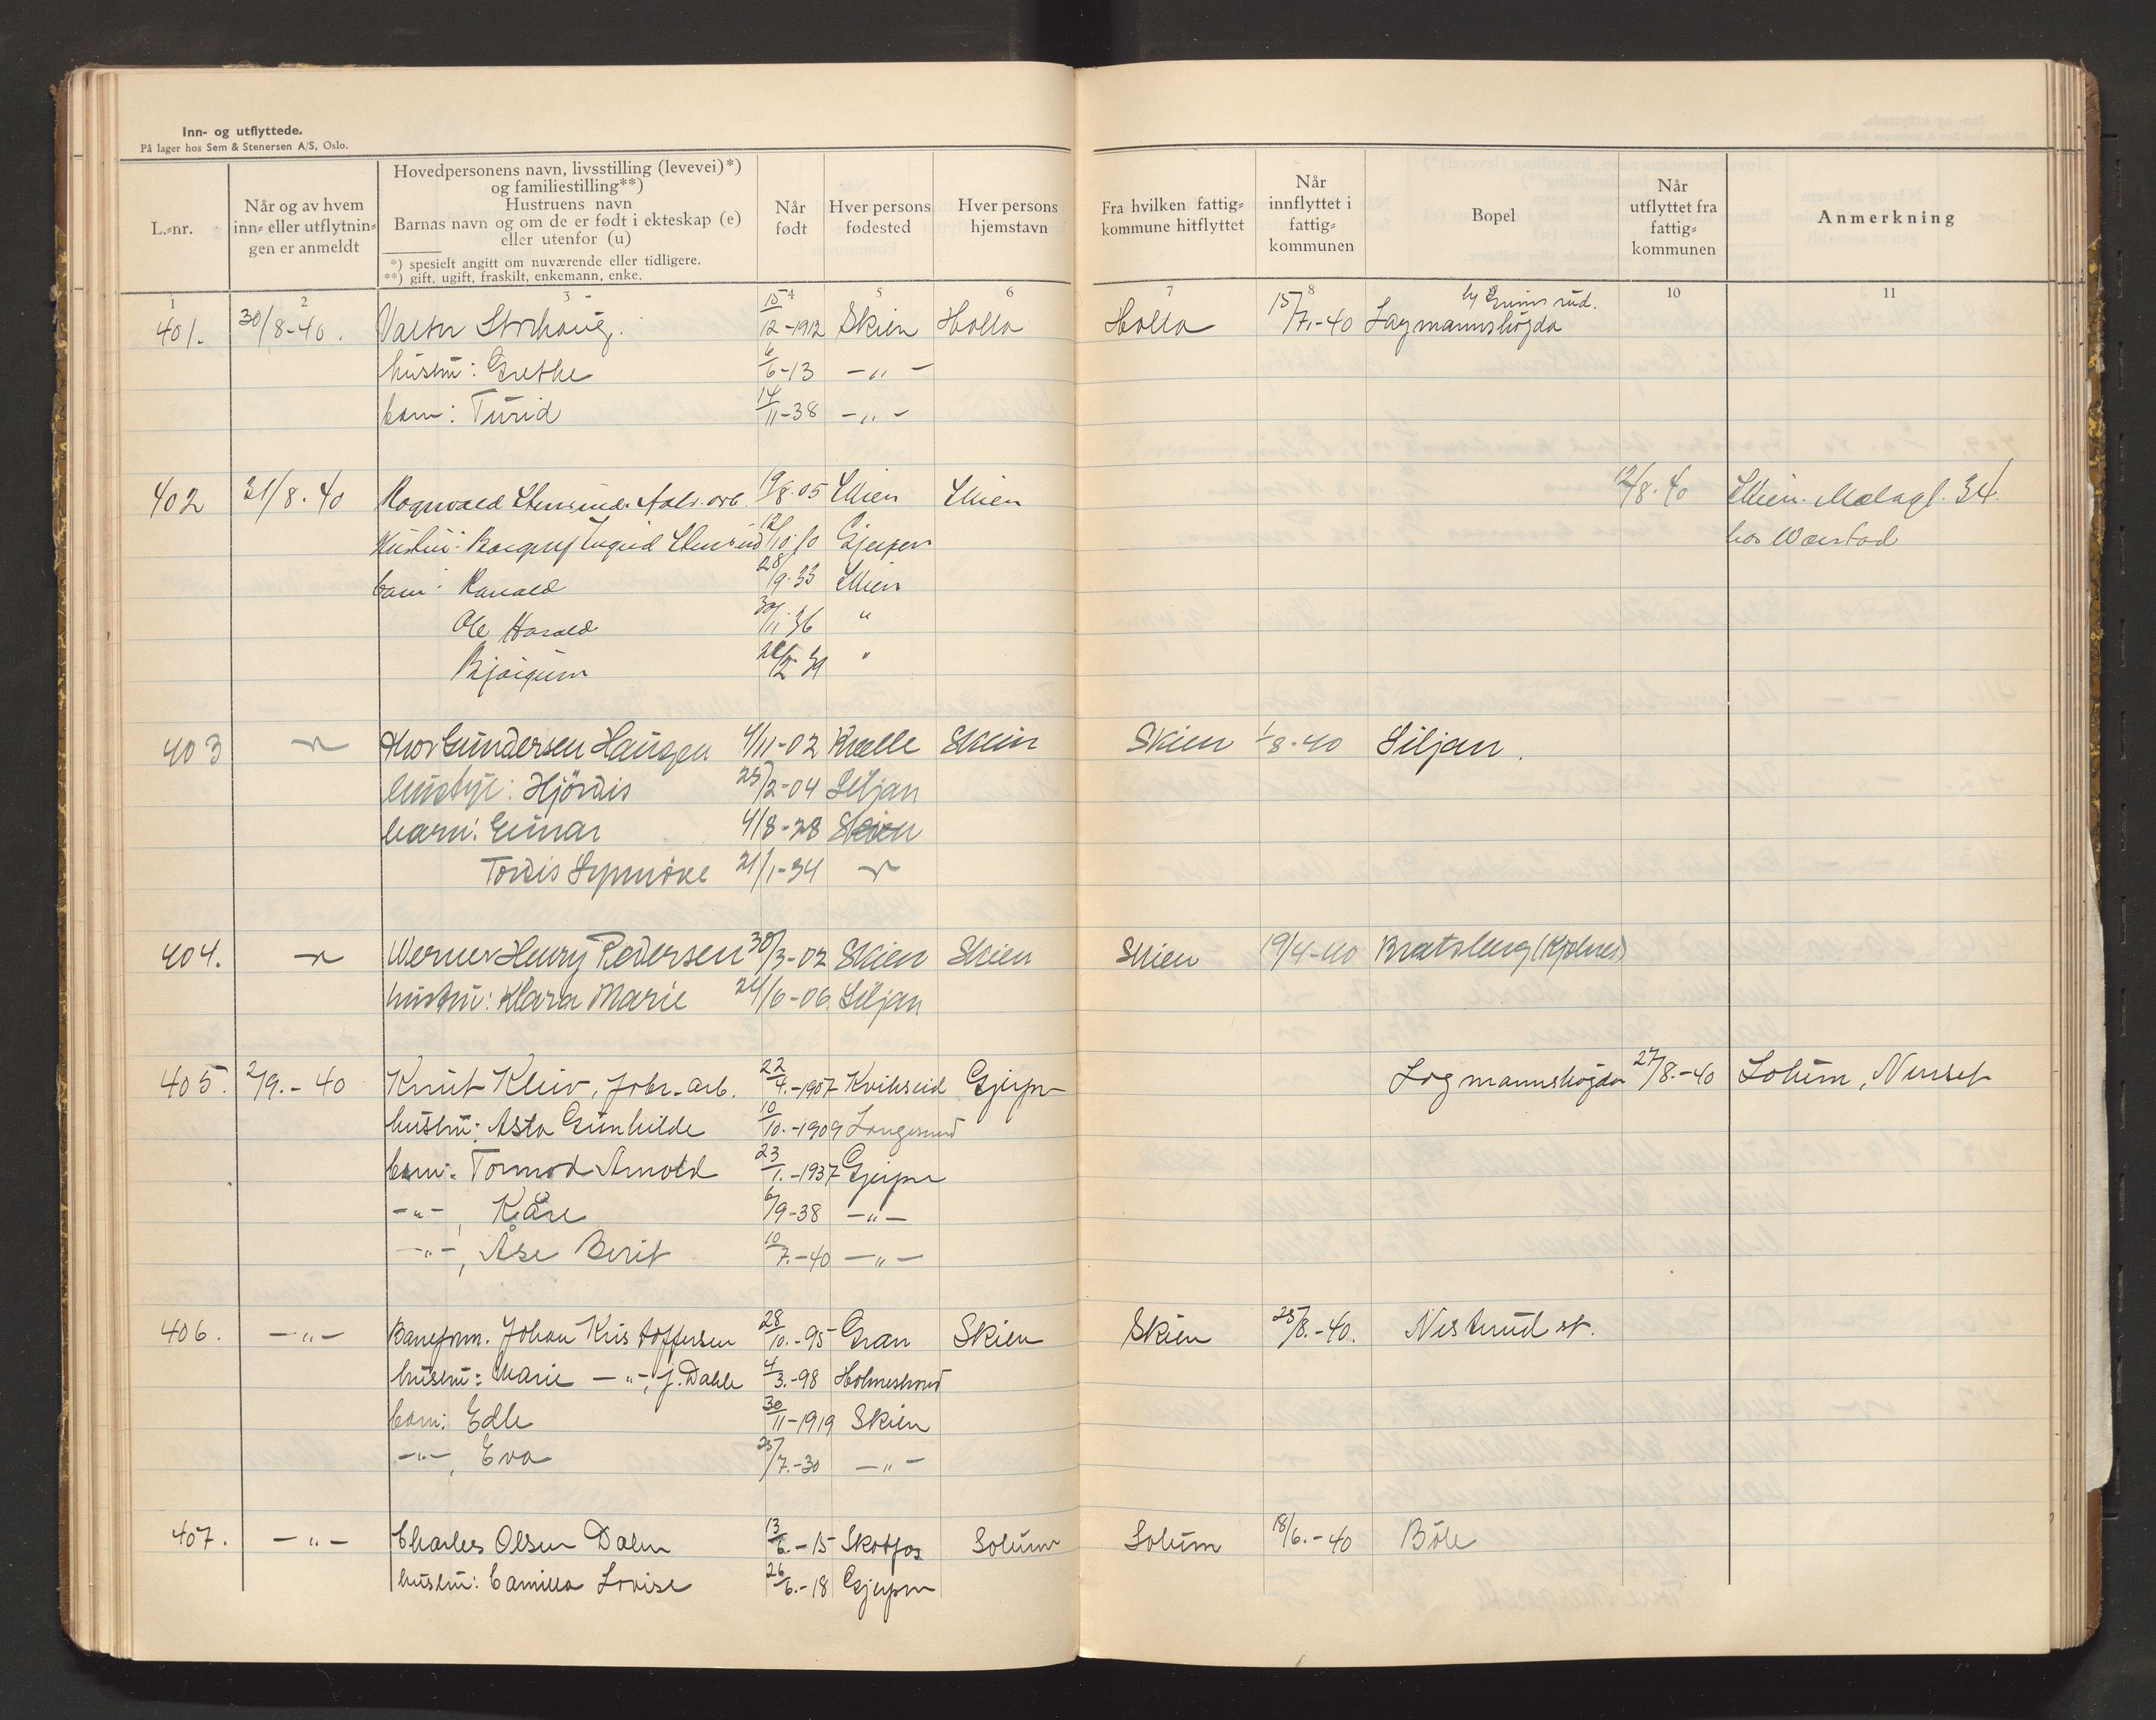 Inn- og utflyttede.
På lager hos Sem & Stenersen A/S, Oslo.
L.-nr.
Når og av hvem inn- eller utflytnin-gen er anmeldt
Hovedpersonens navn, livsstilling (levevei)*)
og familiestilling**)
Hustruens navn
Barnas navn og om de er født i ekteskap (e)
eller utenfor (u)
*) spesielt angitt om nuværende eller tidligere.
**) gift, ugift, fraskilt, enkemann, enke.
Når født
Hver persons fødested
Hver persons hjemstavn
Fra hvilken fattig-kommune hitflyttet
Når innflyttet i fattig-kommunen
Bopel
Når utflyttet fra fattig-kommunen
Anmerkning
1 2 3 4 5 6 7 8 10 11
401. 30/8-40. Valter 15/12-1912 Skien Holla Holla 15/7.-40 Lagmannshögda
hustru: Grethe 6/6-13 -"-
barn: Turid 14/11-38 -"-
402 31/8.40 Rognvald Stensrud. arb. 19/8.05 Skien Skien 12/8.40 Skien. 34.
Hustru: Ingrid Stensrud 12/10.10 Gjerpen hos
barn: Ranald 28/9.33 Skien
Ole Harald 30/11.36 "
"
403 Thor Gundersen Haugen 4/11-02 Skien Skien 1/8-40 Siljan.
Hjördis 25/2-04 Siljan
barn: Gunnar 4/8-28 Skien
Tordis Synnöve 21/1-34
404. Werner Henry Pedersen 30/3-02 Skien Skien Skien 19/4-40 Bratsberg (Kjölnes)
hustru: Klara Marie 24/6-06. Siljan
405. 2/9.-40 Knut Kleiv, fabr. arb. 22/4.-1907 Kviteseid Gjerpen Lagmannshögda 27/8.-40 Solum, Nenset
hustru: Asta Gunhilde 10/10.-1909 Langesund
barn: Tormod Arnold 23/1.-1937 Gjerpen
-"-, Kåre 6/9-38 -"-
-"-, Åse Berit 10/7.-40 -"-
406. -"- Baneform. Johan Kristoffersen 28/10.-95 Gran Skien Skien 25/8.-40. Nisterud st.
hustru: Marie -"-, f. Dahle 4/3.-98 Holmestrand
barn: Edle 30/11-1919 Skien
-"-, Eva 25/7.-30 -"-
407. -"- Charles Olsen Dalen 13/6.-15 Skotfos Solum Solum 18/6.-40 Böle
hustru: Camilla Lovise 26/6.-18 Gjerpen